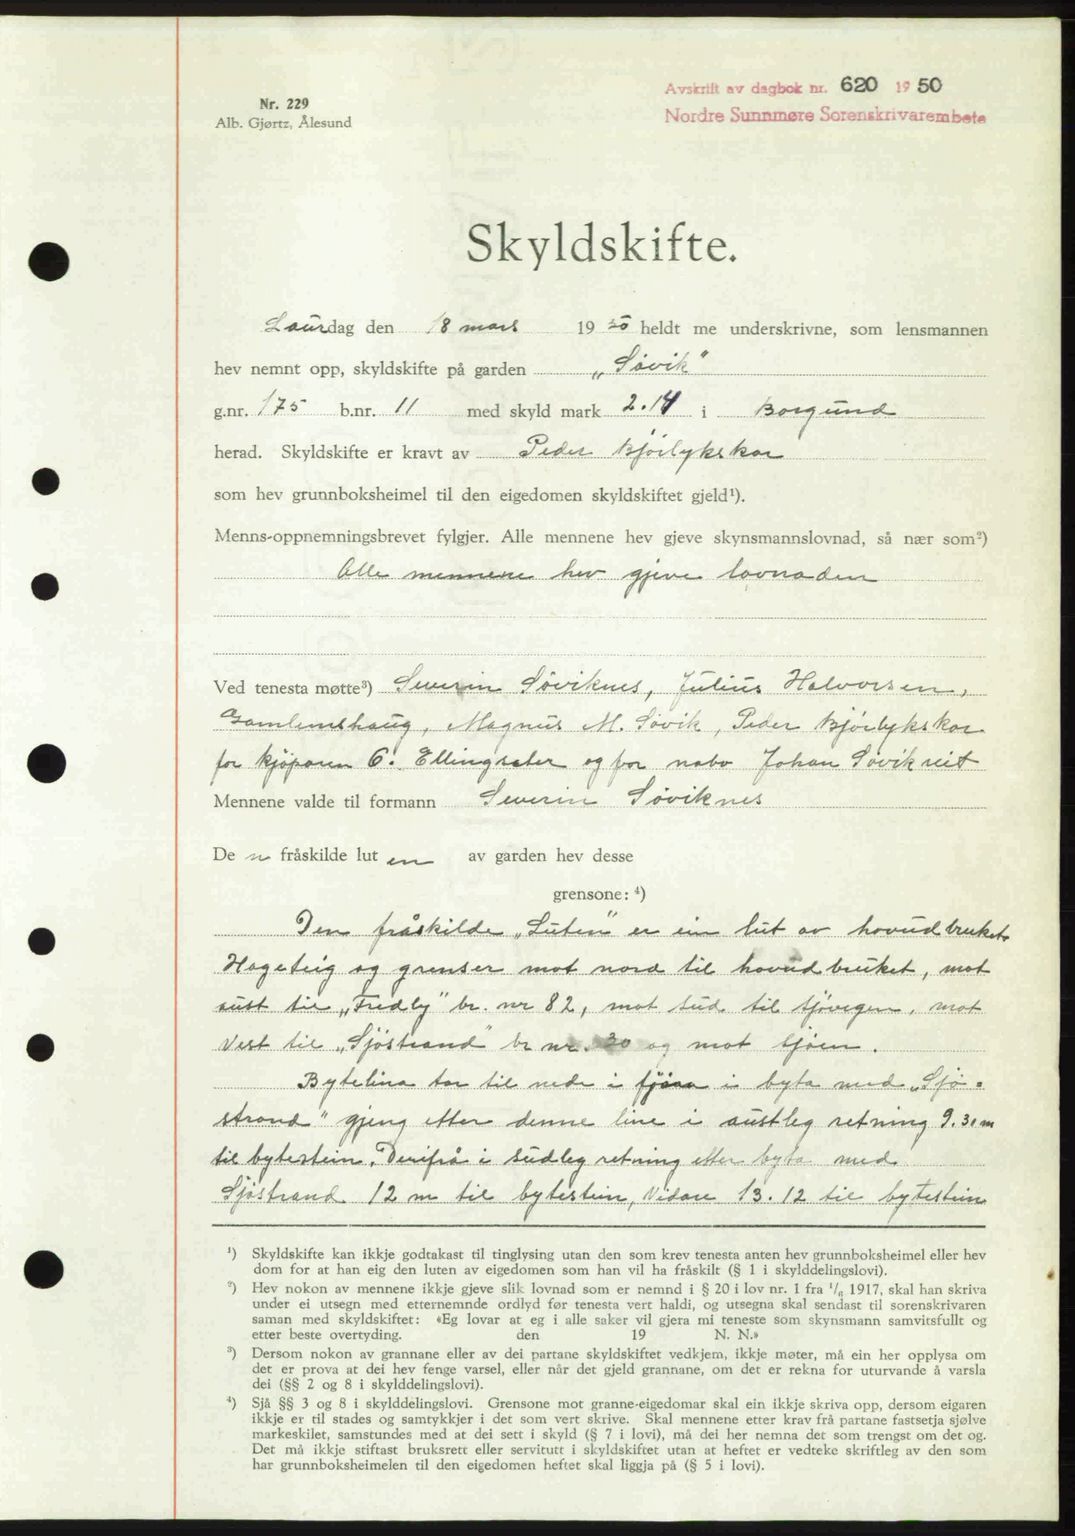 Nr. 229
Alb. Gjørtz, Ålesund
Avskrift av dagbok nr. 620 1950
Nordre Sunnmøre Sorenskrivarembete
Skyldskifte.
Laurdag den 18 mars 1950 heldt me underskrivne, som lensmannen
hev nemnt opp, skyldskifte på garden "Søvik"
g.nr. 175 b.nr. 11 med skyld mark 2.14 i Borgund
herad. Skyldskifte er kravt av Peder Bjørlykskar
som hev grunnboksheimel til den eigedomen skyldskiftet gjeld¹).
Menns-oppnemningsbrevet fylgjer. Alle mennene hev gjeve skynsmannslovnad, så nær som²)
Alle mennene hev gjeve lovnaden
Ved tenesta møtte³) Severin Søviknes, Julius Halvorsen,
Gamlemshaug, Magnus M. Søvik, Peder Bjørlykskar
for kjøparen O. Ellingseter og for nabo Johan Søvikreit
Mennene valde til formann Severin Søviknes
De n fråskilde lut en av garden hev desse
grensone: ⁴)
Den fråskilde "Luten" er ein lut av hovudbrukets
Hageteig og grenser mot nord til hovudbruket, mot
aust til "Fredly" br. nr 82, mot sud til sjøvegen, mot
Vest til "Sjöstrand" br nr. 30 og mot sjøen.
Bytelina tar til nede i fjøra i byta med "Sjö-
strand" gjeng etter denne line i austleg retning 9.30 m
til bytestein. Derifrå i sudleg retning etter byta med
Sjöstrand 12 m til bytestein, Vidare 13.12 til bytestein
¹) Skyldskifte kan ikkje godtakast til tinglysing utan den som krev tenesta anten hev grunnboksheimel eller hev
dom for at han eig den luten av eigedomen som han vil ha fråskilt (§ 1 i skylddelingslovi).
²) Hev nokon av mennene ikkje gjeve slik lovnad som er nemnd i § 20 i lov nr. 1 fra ¹/₆ 1917, skal han skriva
under ei utsegn med etternemnde ordlyd før tenesta vert haldi, og utsegna skal sendast til sorenskrivaren
saman med skyldskiftet: «Eg lovar at eg i alle saker vil gjera mi teneste som skynsmann samvitsfullt og
etter beste overtyding. den 19 N. N.»
³) Dersom nokon av grannane eller av dei partane skyldskiftet vedkjem, ikkje møter, må ein her opplysa om
det er prova at dei hev fenge varsel, eller når det gjeld grannane, om det er rekna for uturvande å varsla
dei (§§ 2 og 8 i skylddelingslovi).
⁴) Sjå §§ 3 og 8 i skylddelingslovi. Grensone mot granne-eigedomar skal ein ikkje skriva opp, dersom eigaren
ikkje er til stades og samtykkjer i det som vert skrive. Skal mennene etter krav frå partane fastsetja sjølve
markeskilet, samstundes med at dei sett i skyld (§ 7 i lovi), må dei her nemna det som trengst om det og.
Det må ikkje stiftast bruksrett eller servitutt i skyldskiftet utan at heftet er vedteke skriftleg av den som
har grunnboksheimelen til den eigedomen heftet skal liggja på (§ 5 i lovi).